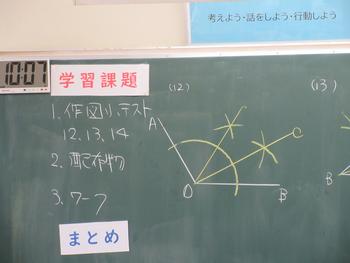 考えよう・話をしよう・行動しよう
10:07
学習課題
(12)
(13)
1. 作図小テスト
12.13.14
2. 配布物
3. ワーク
まとめ
A
C
O
B
B